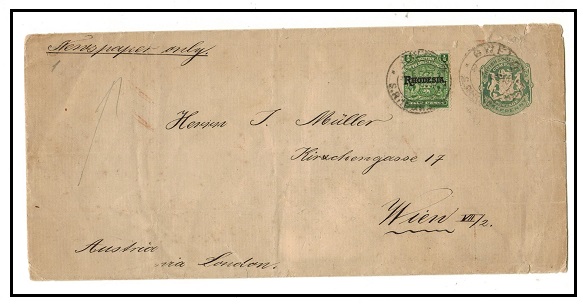 Newspaper only.
RHODESIA.
GWE
Herrn J. Müller
Kirschengasse 17
Wien VII/2.
Austria
via London.